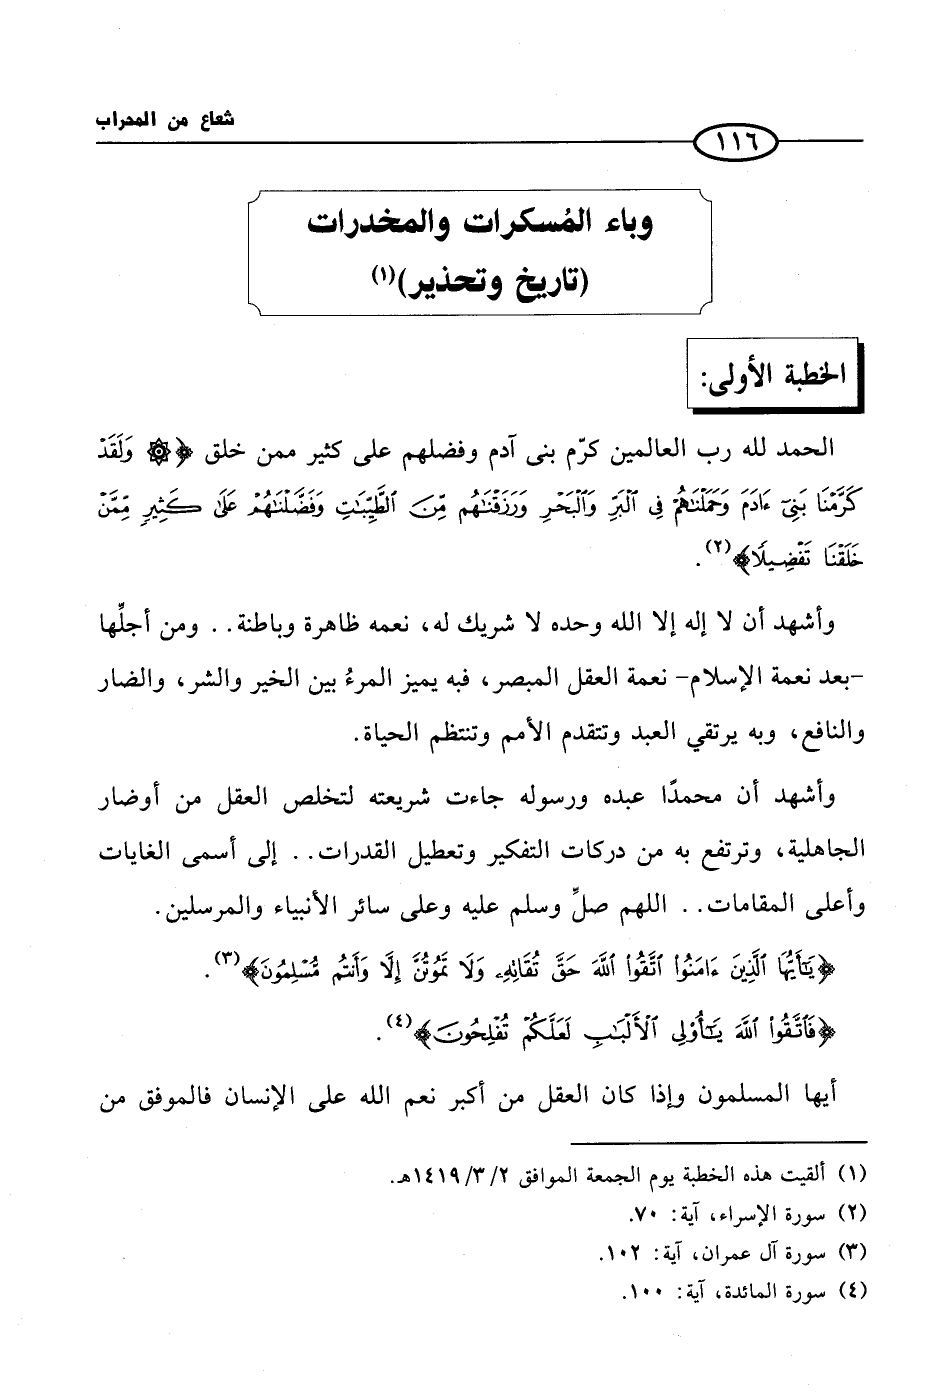 شعاع من المحراب
١١٦
وباء المُسكرات والمخدرات
(تاريخ وتحذير)(١)
الخطبة الأولى:
الحمد لله رب العالمين كرّم بني آدم وفضلهم على كثير ممن خلق ﴿۞ وَلَقَدْ
كَرَّمْنَا بَنِىٓ ءَادَمَ وَحَمَلْنَـٰهُمْ فِى ٱلْبَرِّ وَٱلْبَحْرِ وَرَزَقْنَـٰهُم مِّنَ ٱلطَّيِّبَـٰتِ وَفَضَّلْنَـٰهُمْ عَلَىٰ كَثِيرٍ مِّمَّنْ
خَلَقْنَا تَفْضِيلًا﴾(٢).
وأشهد أن لا إله إلا الله وحده لا شريك له، نعمه ظاهرة وباطنة.. ومن أجلِّها
-بعد نعمة الإسلام- نعمة العقل المبصر، فبه يميز المرءُ بين الخير والشر، والضار
والنافع، وبه يرتقي العبد وتتقدم الأمم وتنتظم الحياة.
وأشهد أن محمدًا عبده ورسوله جاءت شريعته لتخلص العقل من أوضار
الجاهلية، وترتفع به من دركات التفكير وتعطيل القدرات.. إلى أسمى الغايات
وأعلى المقامات.. اللهم صلِّ وسلم عليه وعلى سائر الأنبياء والمرسلين.
﴿يَـٰٓأَيُّهَا ٱلَّذِينَ ءَامَنُوا۟ ٱتَّقُوا۟ ٱللَّهَ حَقَّ تُقَاتِهِۦ وَلَا تَمُوتُنَّ إِلَّا وَأَنتُم مُّسْلِمُونَ﴾(٣).
﴿فَٱتَّقُوا۟ ٱللَّهَ يَـٰٓأُو۟لِى ٱلْأَلْبَـٰبِ لَعَلَّكُمْ تُفْلِحُونَ﴾(٤).
أيها المسلمون وإذا كان العقل من أكبر نعم الله على الإنسان فالموفق من
(١) ألقيت هذه الخطبة يوم الجمعة الموافق ٢/ ٣/ ١٤١٩هـ.
(٢) سورة الإسراء، آية: ٧٠.
(٣) سورة آل عمران، آية: ١٠٢.
(٤) سورة المائدة، آية: ١٠٠.